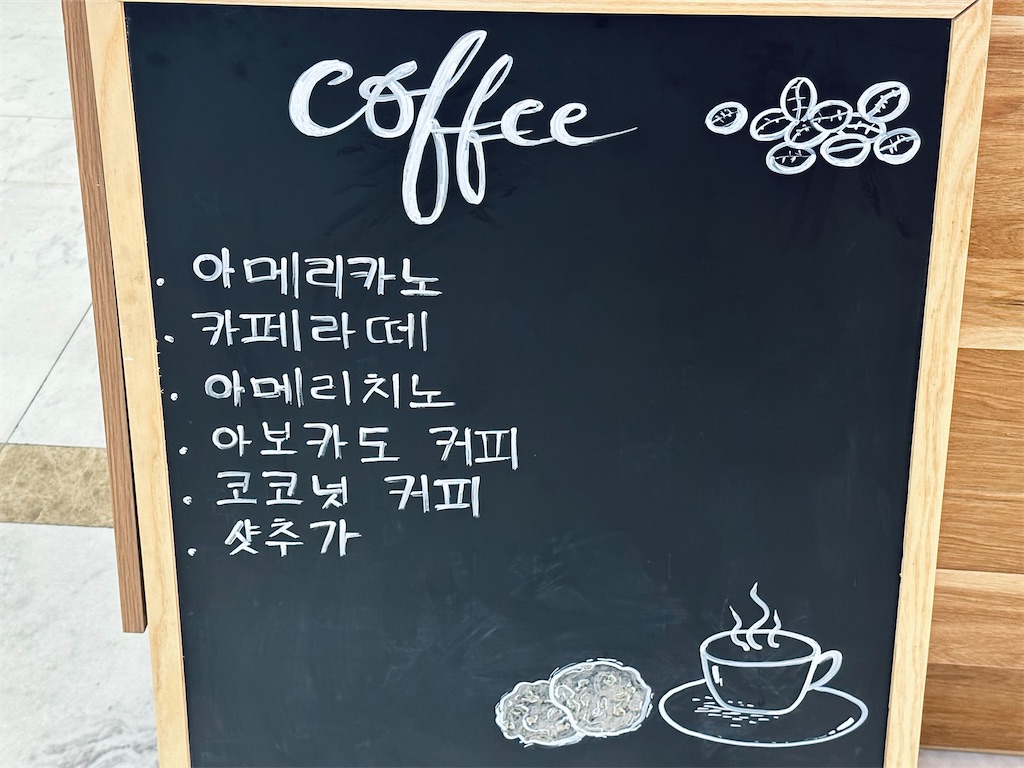 coffee
. 아메리카노
. 카페라떼
. 아메리치노
. 아보카도 커피
. 코코넛 커피
. 샷추가